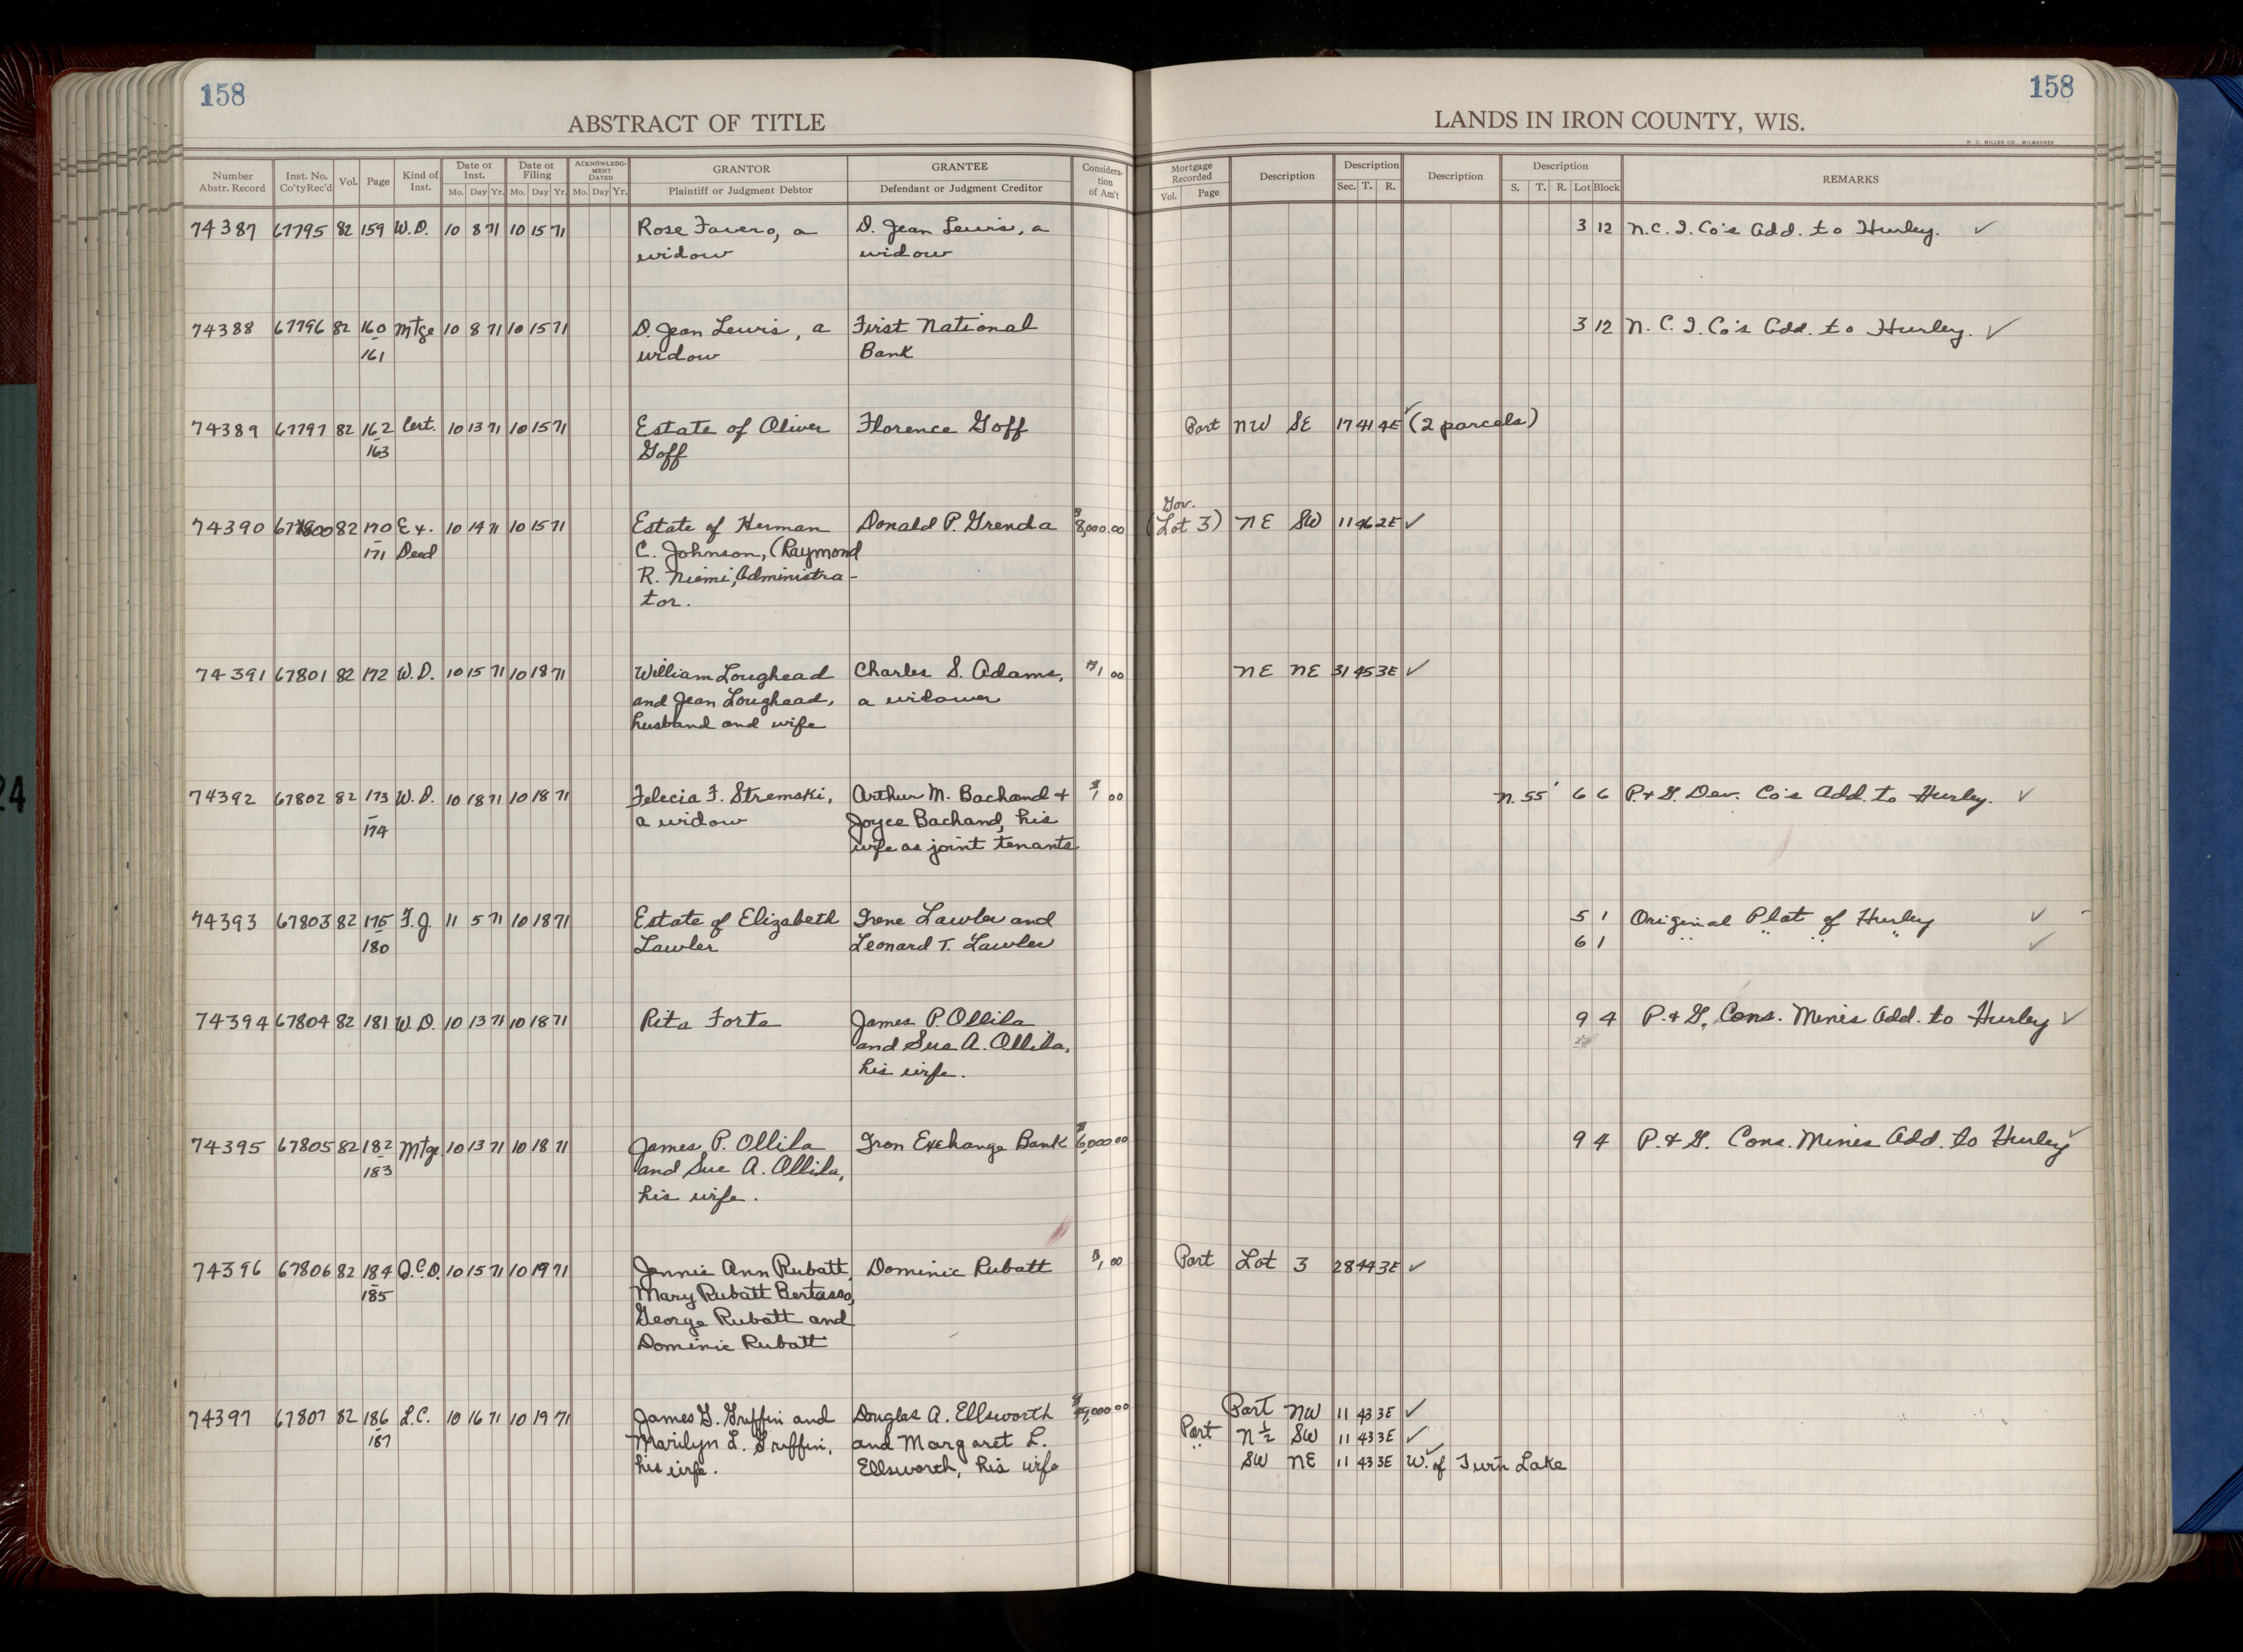 158
158
ABSTRACT OF TITLE
LANDS IN IRON COUNTY, WIS.
H. C. MILLER CO., MILWAUKEE
Number Abstr. Record | Inst. No. Co'ty Rec'd | Vol. | Page | Kind of Inst. | Date of Inst. Mo. Day Yr. | Date of Filing Mo. Day Yr. | ACKNOWLEDGMENT DATED Mo. Day Yr. | GRANTOR Plaintiff or Judgment Debtor | GRANTEE Defendant or Judgment Creditor | Consideration of Am't | Mortgage Recorded Vol. Page | Description | Description Sec. T. R. | Description | Description S. T. R. Lot Block | REMARKS
74387 67795 82 159 W.D. 10 8 71 10 15 71 Rose Favero, a D. Jean Lewis, a 3 12 N.C.I. Co's Add. to Hurley. ✓
widow widow
74388 67796 82 160 Mtge 10 8 71 10 15 71 D. Jean Lewis, a First National 3 12 N.C.I. Co's Add. to Hurley. ✓
161 widow Bank
74389 67797 82 162 Cert. 10 13 71 10 15 71 Estate of Oliver Florence Goff Part NW SE 17 41 4E ✓ (2 parcels)
163 Goff
Gov.
74390 67800 82 170 Ex. 10 14 71 10 15 71 Estate of Herman Donald P. Grenda $8,000.00 (Lot 3) NE SW 11 46 2E ✓
171 Deed C. Johnson, (Raymond
R. Niemi, Administra-
tor.
74391 67801 82 172 W.D. 10 15 71 10 18 71 William Loughead Charles S. Adams, $1.00 NE NE 31 45 3E ✓
and Jean Loughead, a widower
husband and wife
74392 67802 82 173 W.D. 10 18 71 10 18 71 Felecia F. Stremski, Arthur M. Bachand + $1.00 N. 55' 6 6 P. + G. Dev. Co's Add. to Hurley. ✓
174 a widow Joyce Bachand, his
wife as joint tenants
74393 67803 82 175 F.J. 11 5 71 10 18 71 Estate of Elizabeth Irene Lawler and 5 1 Original Plat of Hurley ✓
180 Lawler Leonard T. Lawler 6 1 " " " " ✓
74394 67804 82 181 W.D. 10 13 71 10 18 71 Rita Forte James P. Ollila 9 4 P. + G. Cons. Mines Add. to Hurley ✓
and Sue A. Ollila,
his wife.
74395 67805 82 182 Mtge. 10 13 71 10 18 71 James P. Ollila Iron Exchange Bank $6,000.00 9 4 P. & G. Cons. Mines Add. to Hurley ✓
183 and Sue A. Ollila,
his wife.
74396 67806 82 184 Q.C.D. 10 15 71 10 19 71 Jennie Ann Rubatt, Dominic Rubatt $1.00 Part Lot 3 28 44 3E ✓
185 Mary Rubatt Bertasso,
George Rubatt and
Dominic Rubatt
74397 67807 82 186 L.C. 10 16 71 10 19 71 James G. Griffin and Douglas A. Ellsworth Part NW 11 43 3E ✓
187 Marilyn L. Griffin, and Margaret L. Part N½ SW 11 43 3E ✓
his wife. Ellsworth, his wife " SW NE 11 43 3E W. of Turn Lake ✓
24